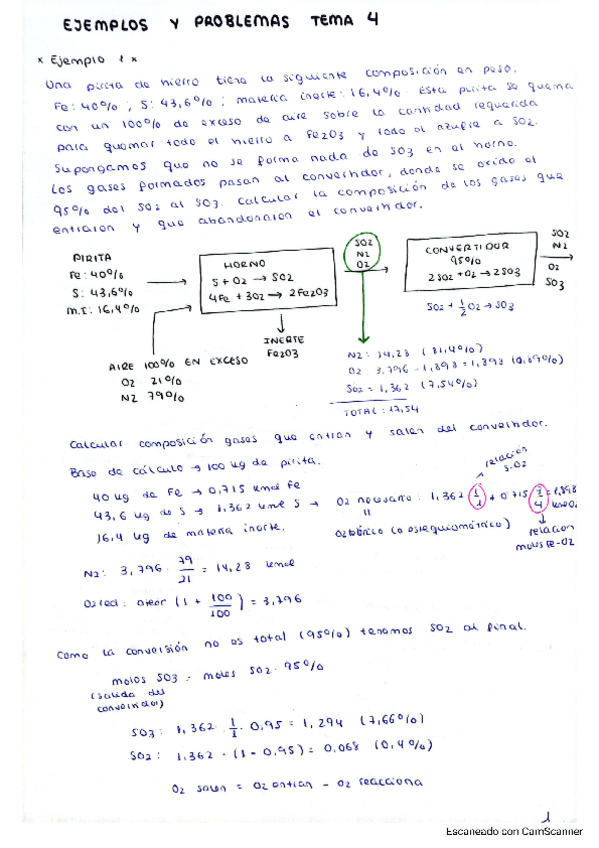 EJEMPLOS Y PROBLEMAS TEMA 4
* Ejemplo 1 *
Una pirita de hierro tiene la siguiente composición en peso:
Fe: 40%; S: 43,6%; materia inerte: 16,4%. Esta pirita se quema
con un 100% de exceso de aire sobre la cantidad requerida
para quemar todo el hierro a Fe2O3 y todo el azufre a SO2.
Supongamos que no se forma nada de SO3 en el horno.
Los gases formados pasan al convertidor, donde se oxida el
95% del SO2 al SO3. Calcular la composición de los gases que
entraron y que abandonaron el convertidor.
PIRITA
Fe: 40%
S: 43,6%
M.I: 16,4%
HORNO
S + O2 → SO2
4Fe + 3O2 → 2Fe2O3
SO2
N2
O2
CONVERTIDOR
95%
2SO2 + O2 → 2SO3
SO2
N2
O2
SO3
SO2 + 1/2 O2 → SO3
INERTE
Fe2O3
AIRE 100% EN EXCESO
O2 21%
N2 79%
N2: 14,28 (81,4%)
O2: 3,796 - 1,898 = 1,898 (10,89%)
SO2 = 1,362 (7,54%)
TOTAL: 17,54
Calcular composición gases que entran y salen del convertidor.
Base de cálculo → 100 kg de pirita.
40 kg de Fe → 0,715 kmol Fe
43,6 kg de S → 1,362 kmol S → O2 necesario: 1,362 1/1 + 0,715 3/4 = 1,898 kmol O2
relación S-O2
16,4 kg de materia inerte.
O2 teórico (o estequiométrico)
relación moles Fe-O2
N2: 3,796 · 79/21 = 14,28 kmol
O2 red: oteor (1 + 100/100) = 3,796
Como la conversión no es total (95%) tenemos SO2 al final.
moles SO3 = moles SO2 · 95%
(salida del
convertidor)
SO3: 1,362 · 1/1 · 0,95 = 1,294 (7,66%)
SO2: 1,362 · (1 - 0,95) = 0,068 (0,4%)
O2 salen = O2 entran - O2 reacciona
1
Escaneado con CamScanner